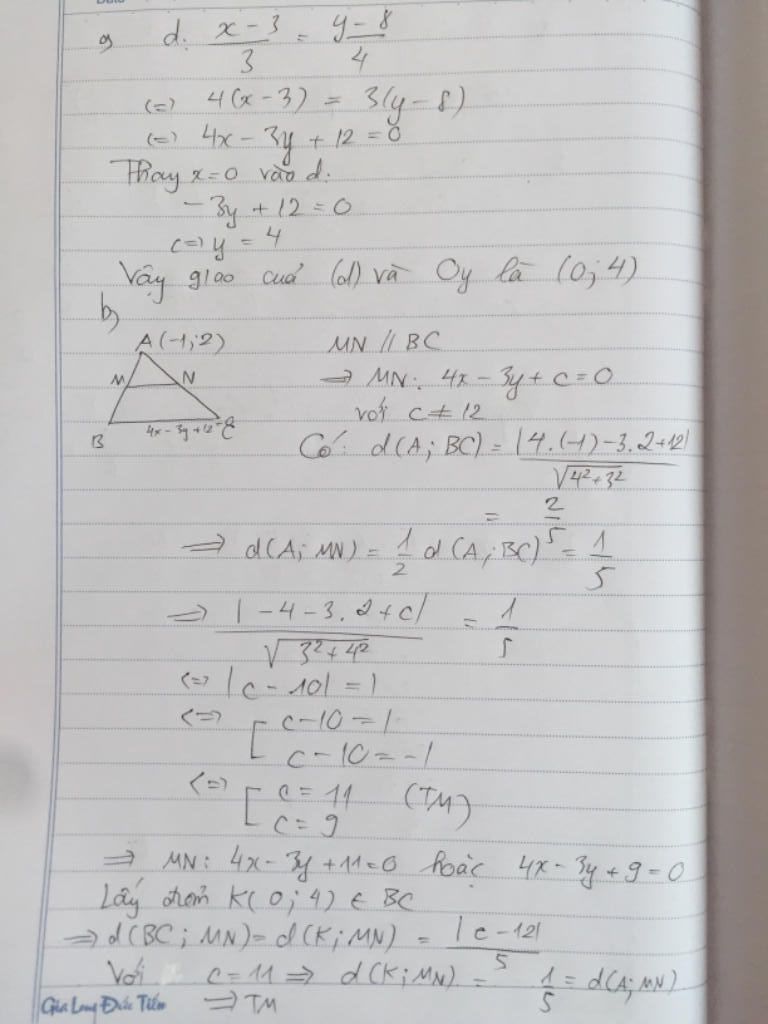 a) d: x-3/3 = y-8/4
(=) 4(x-3) = 3(y-8)
(=) 4x-3y+12=0
Thay x=0 vào d:
-3y+12=0
(=) y = 4
Vậy giao của (d) và Oy là (0;4)
b)
A(-1;2)
MN // BC
M N
=> MN: 4x-3y+c=0
với c ≠ 12
B 4x-3y+12 C
Có: d(A; BC) = |4.(-1)-3.2+12|/√4²+3²
= 2/5
=> d(A; MN) = 1/2 d(A; BC) = 1/5
=> |-4-3.2+c|/√3²+4² = 1/5
<=> |c-10|=1
<=> [ c-10=1
c-10=-1
<=> [ c=11 (TM)
c=9
=> MN: 4x-3y+11=0 hoặc 4x-3y+9=0
Lấy điểm K(0;4) ∈ BC
=> d(BC; MN)= d(K; MN) = |c-12|/5
Với c=11 => d(K; MN) = 1/5 = d(A; MN)
=> TM
Gia Long Đức Tiến